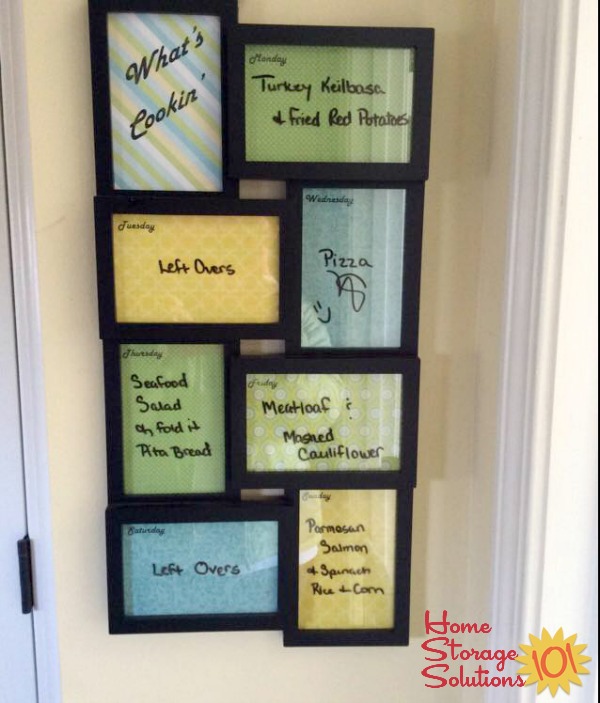 What's
Cookin'
Monday
Turkey Keilbasa
& Fried Red Potatoes
Tuesday
Left Overs
Wednesday
Pizza
Thursday
Seafood
Salad
on Fold it
Pita Bread
Friday
Meatloaf &
Mashed
Cauliflower
Saturday
Left Overs
Sunday
Parmesan
Salmon
& Spinach
Rice & Corn
Home
Storage
Solutions 101